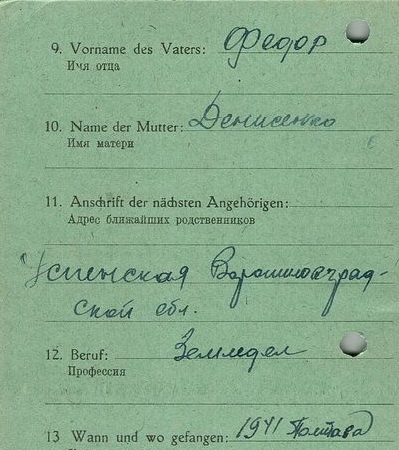 9. Vorname des Vaters: Федор
Имя отца
10. Name der Mutter: Денисенко
Имя матери
11. Anschrift der nächsten Angehörigen:
Адрес ближайших родственников
Успенская Ворошиловград-
ской обл.
12. Beruf: Земледел
Профессия
13 Wann und wo gefangen: 1941 Полтава